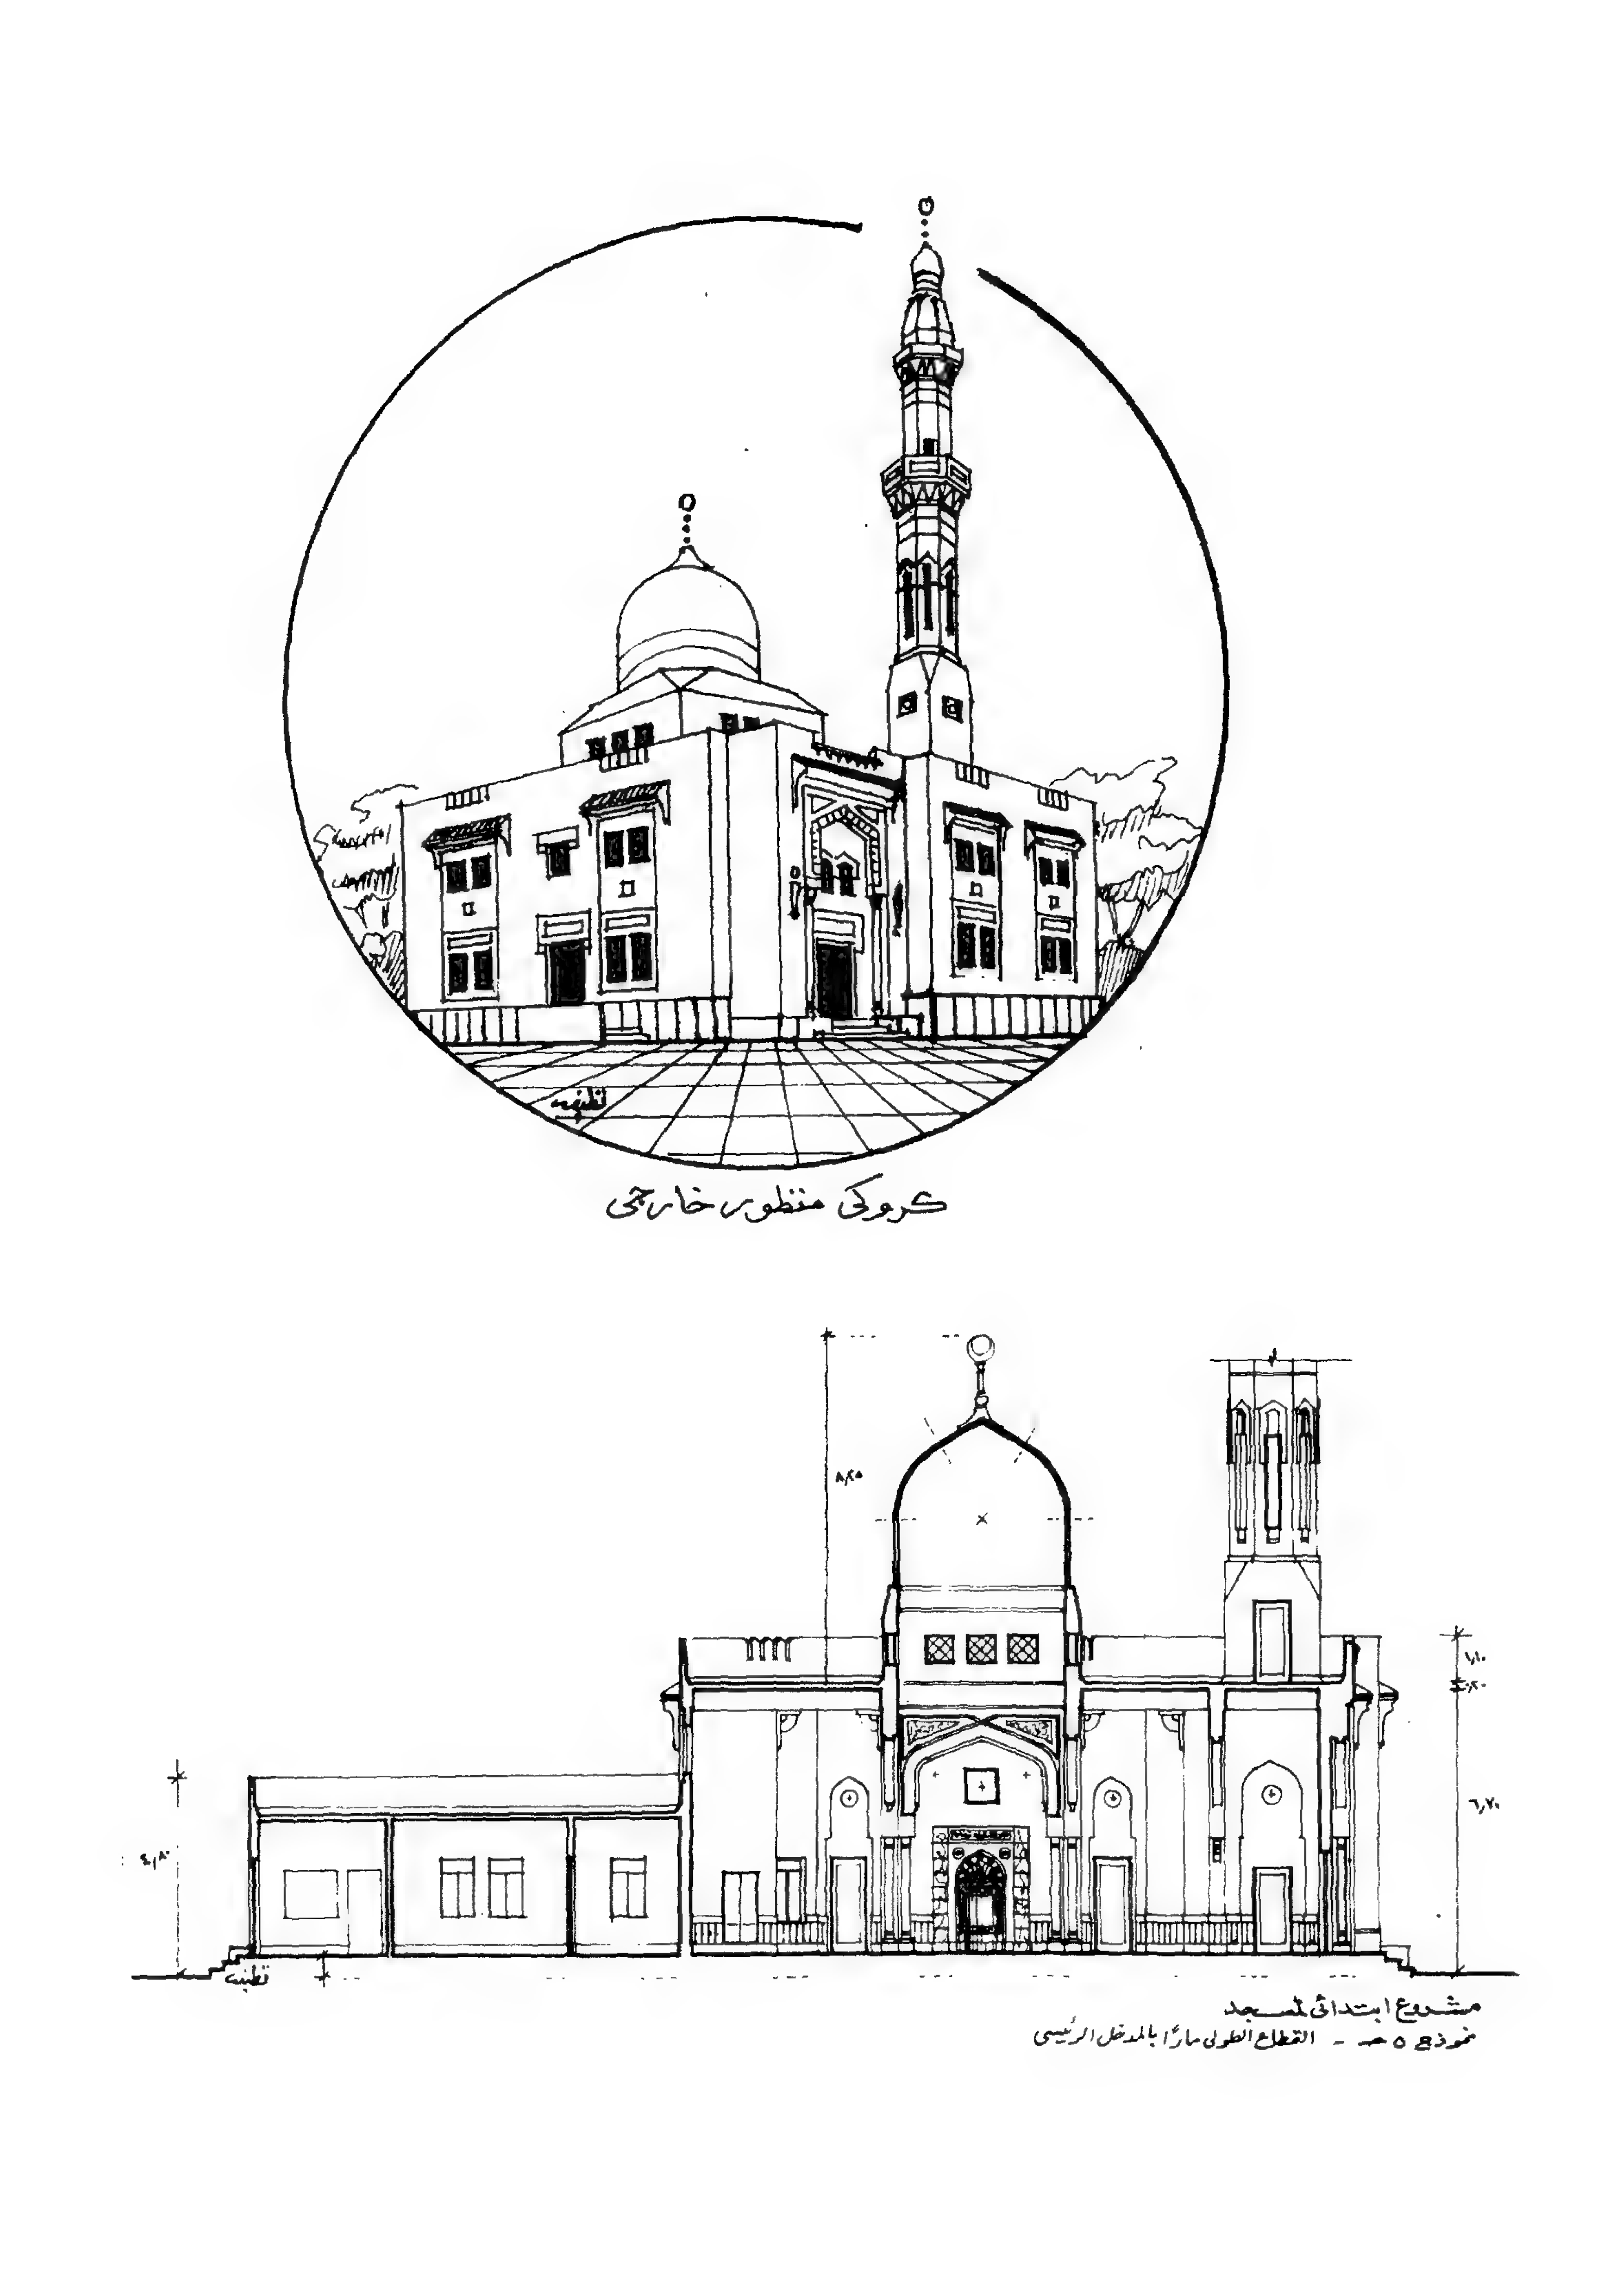 نظيف
كروكى منظور خارجى
٨٫٢٥
١٫١٠
٠٫٢٠
٦٫٧٠
٤٫٨٠
نظيف
مشروع ابتدائى لمسجد
نموذج ٥ حـ - القطاع الطولى مارًا بالمدخل الرئيسى